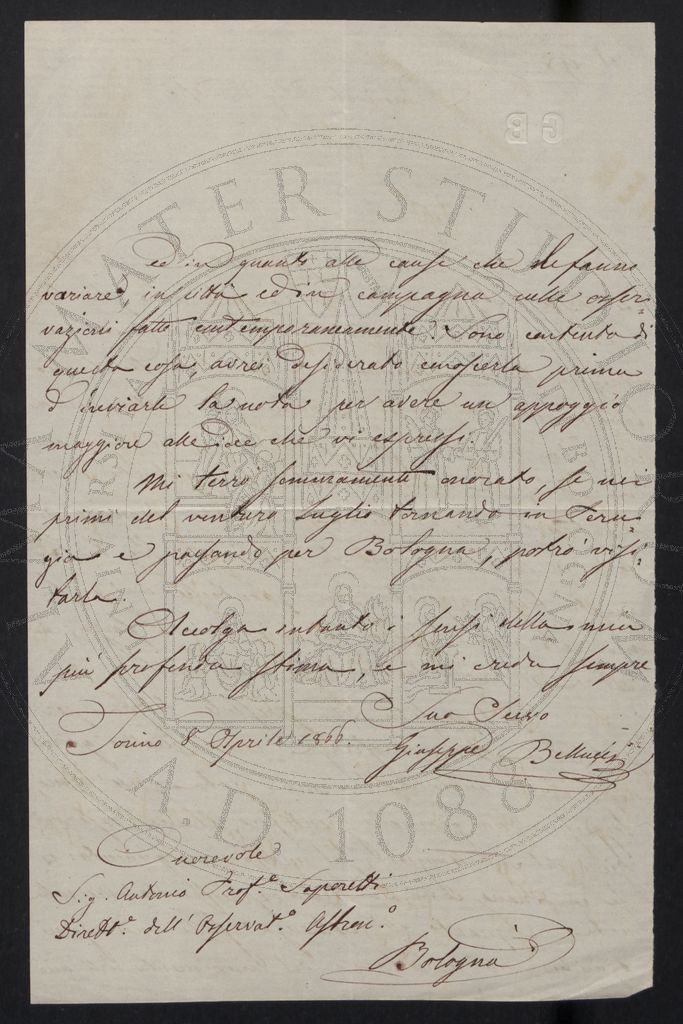 ed in quanto alle cause che lo fanno
variare, in città ed in campagna nelle osser-
vazioni fatte contemporaneamente? Sono contento di
questa cosa, avrei desiderato conoscerla prima
d'inviarle la nota per avere un appoggio
maggiore alle idee che vi espressi.
Mi terrò sommamente onorato, se nei
primi del venturo Luglio tornando in Peru-
gia e passando per Bologna, potrò visi-
tarla.
Accolga intanto i sensi della mia
più profonda stima, e mi creda sempre
Suo Devmo
Torino 8 Aprile 1866. Giuseppe Bellucci
Onorevole
Sig. Antonio Prof.e Saporetti
Dirett.e dell'Osservat.o Astron.o
Bologna
GB
ALMA MATER STUDIORUM
A.D. 1088